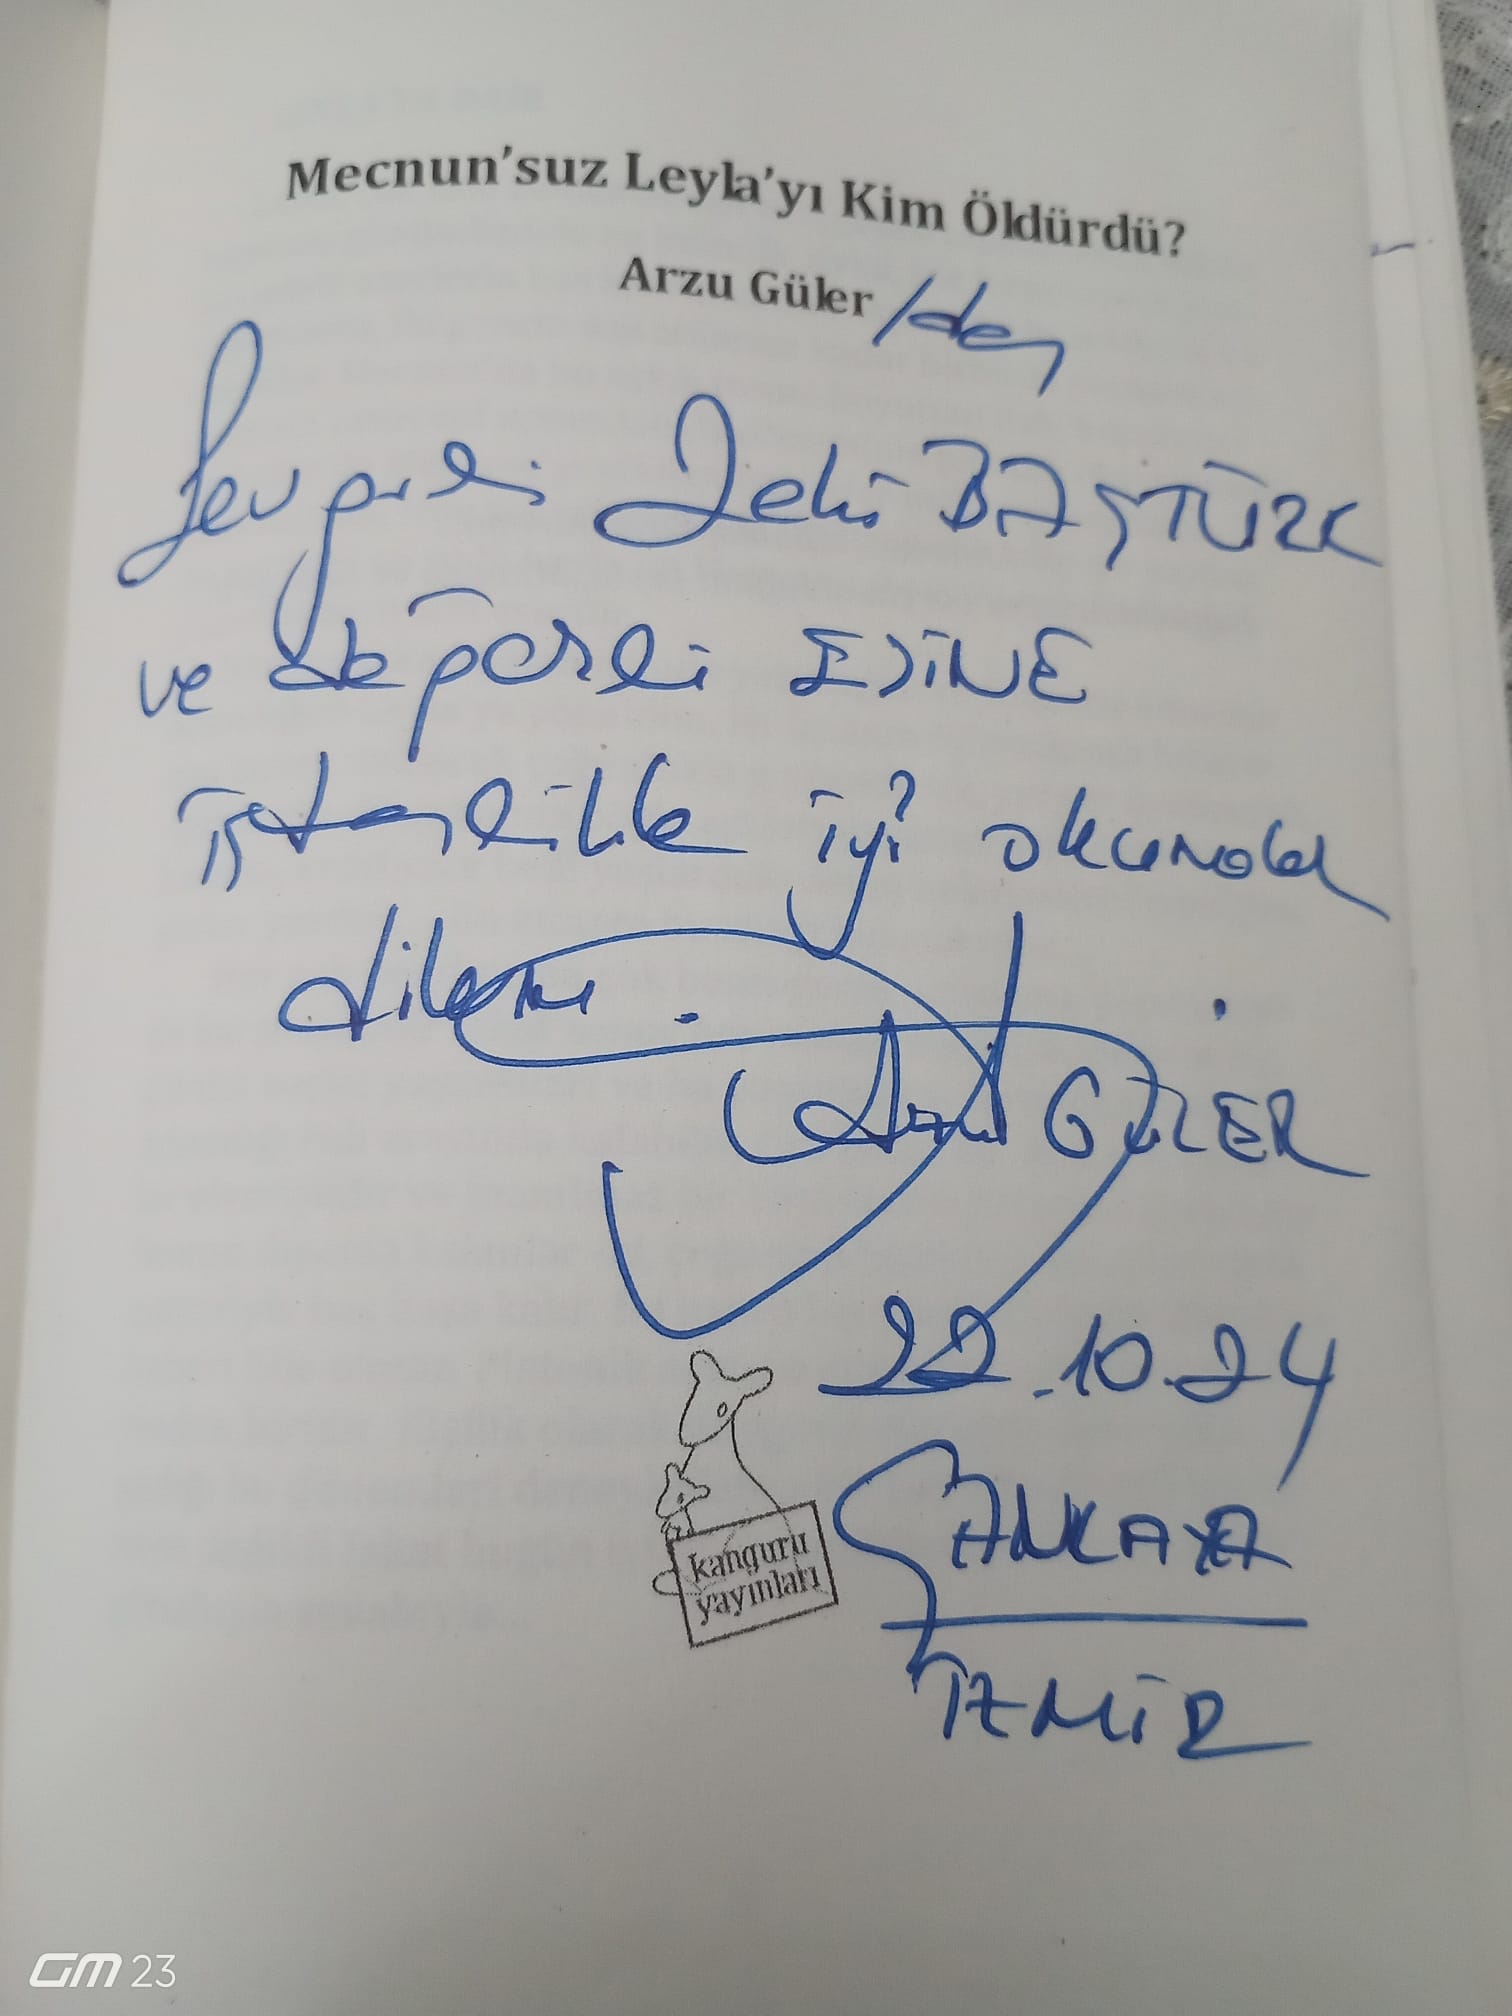 Mecnun'suz Leyla'yı Kim Öldürdü?
Arzu Güler /den
Sevgili Zeki BAŞTÜRK
ve değerli EŞİNE
içtenlikle iyi okumalar
dilerim.
Arzu GÜLER
22.10.24
ÇANKAYA
İZMİR
kanguru
yayınları
GM 23